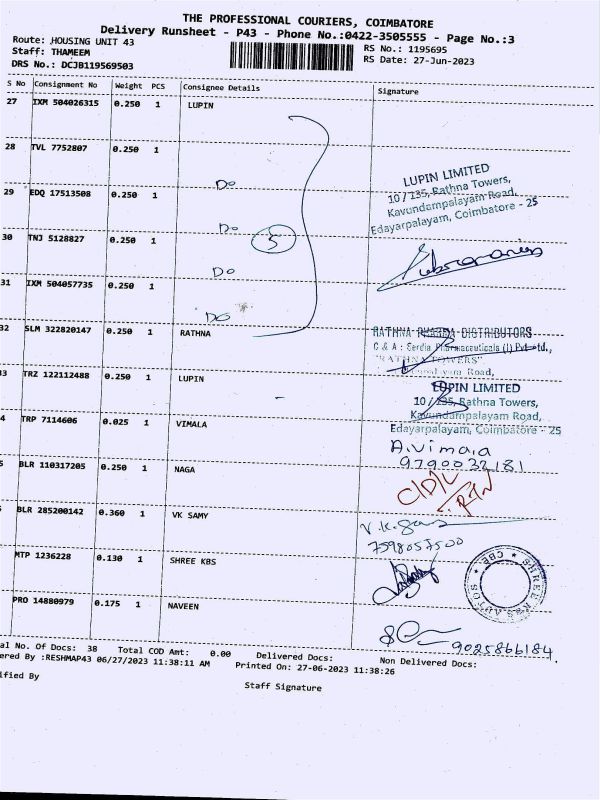 THE PROFESSIONAL COURIERS, COIMBATORE
Delivery Runsheet - P43 - Phone No.:0422-3505555 - Page No.:3
Route: HOUSING UNIT 43 RS No.: 1195695
Staff: THAMEEM RS Date: 27-Jun-2023
DRS No.: DCJB119569503
S No Consignment No Weight PCS Consignee Details Signature
27 IXM 504026315 0.250 1 LUPIN
28 TVL 7752807 0.250 1 Do
LUPIN LIMITED
10/135, Rathna Towers,
Kavundampalayam Road,
Edayarpalayam, Coimbatore - 25
29 EDQ 17513508 0.250 1 Do
5
30 TNJ 5128827 0.250 1 Do
31 IXM 504057735 0.250 1 Do
32 SLM 322820147 0.250 1 RATHNA
RATHNA PHARMA DISTRIBUTORS
C & A : Serdia Pharmaceuticals (I) Pvt. Ltd.,
"RATHNA TOWERS"
Road,
3 TRZ 122112488 0.250 1 LUPIN
LUPIN LIMITED
10/135, Rathna Towers,
Kavundampalayam Road,
Edayarpalayam, Coimbatore - 25
4 TRP 7114606 0.025 1 VIMALA
A.Vimala
9790032181
5 BLR 110317205 0.250 1 NAGA
BLR 285200142 0.360 1 VK SAMY
7598057500
MTP 1236228 0.130 1 SHREE KBS
CBE
PRO 14880979 0.175 1 NAVEEN
9025866184
al No. Of Docs: 38 Total COD Amt: 0.00 Delivered Docs: Non Delivered Docs:
ered By :RESHMAP43 06/27/2023 11:38:11 AM Printed On: 27-06-2023 11:38:26
ified By Staff Signature